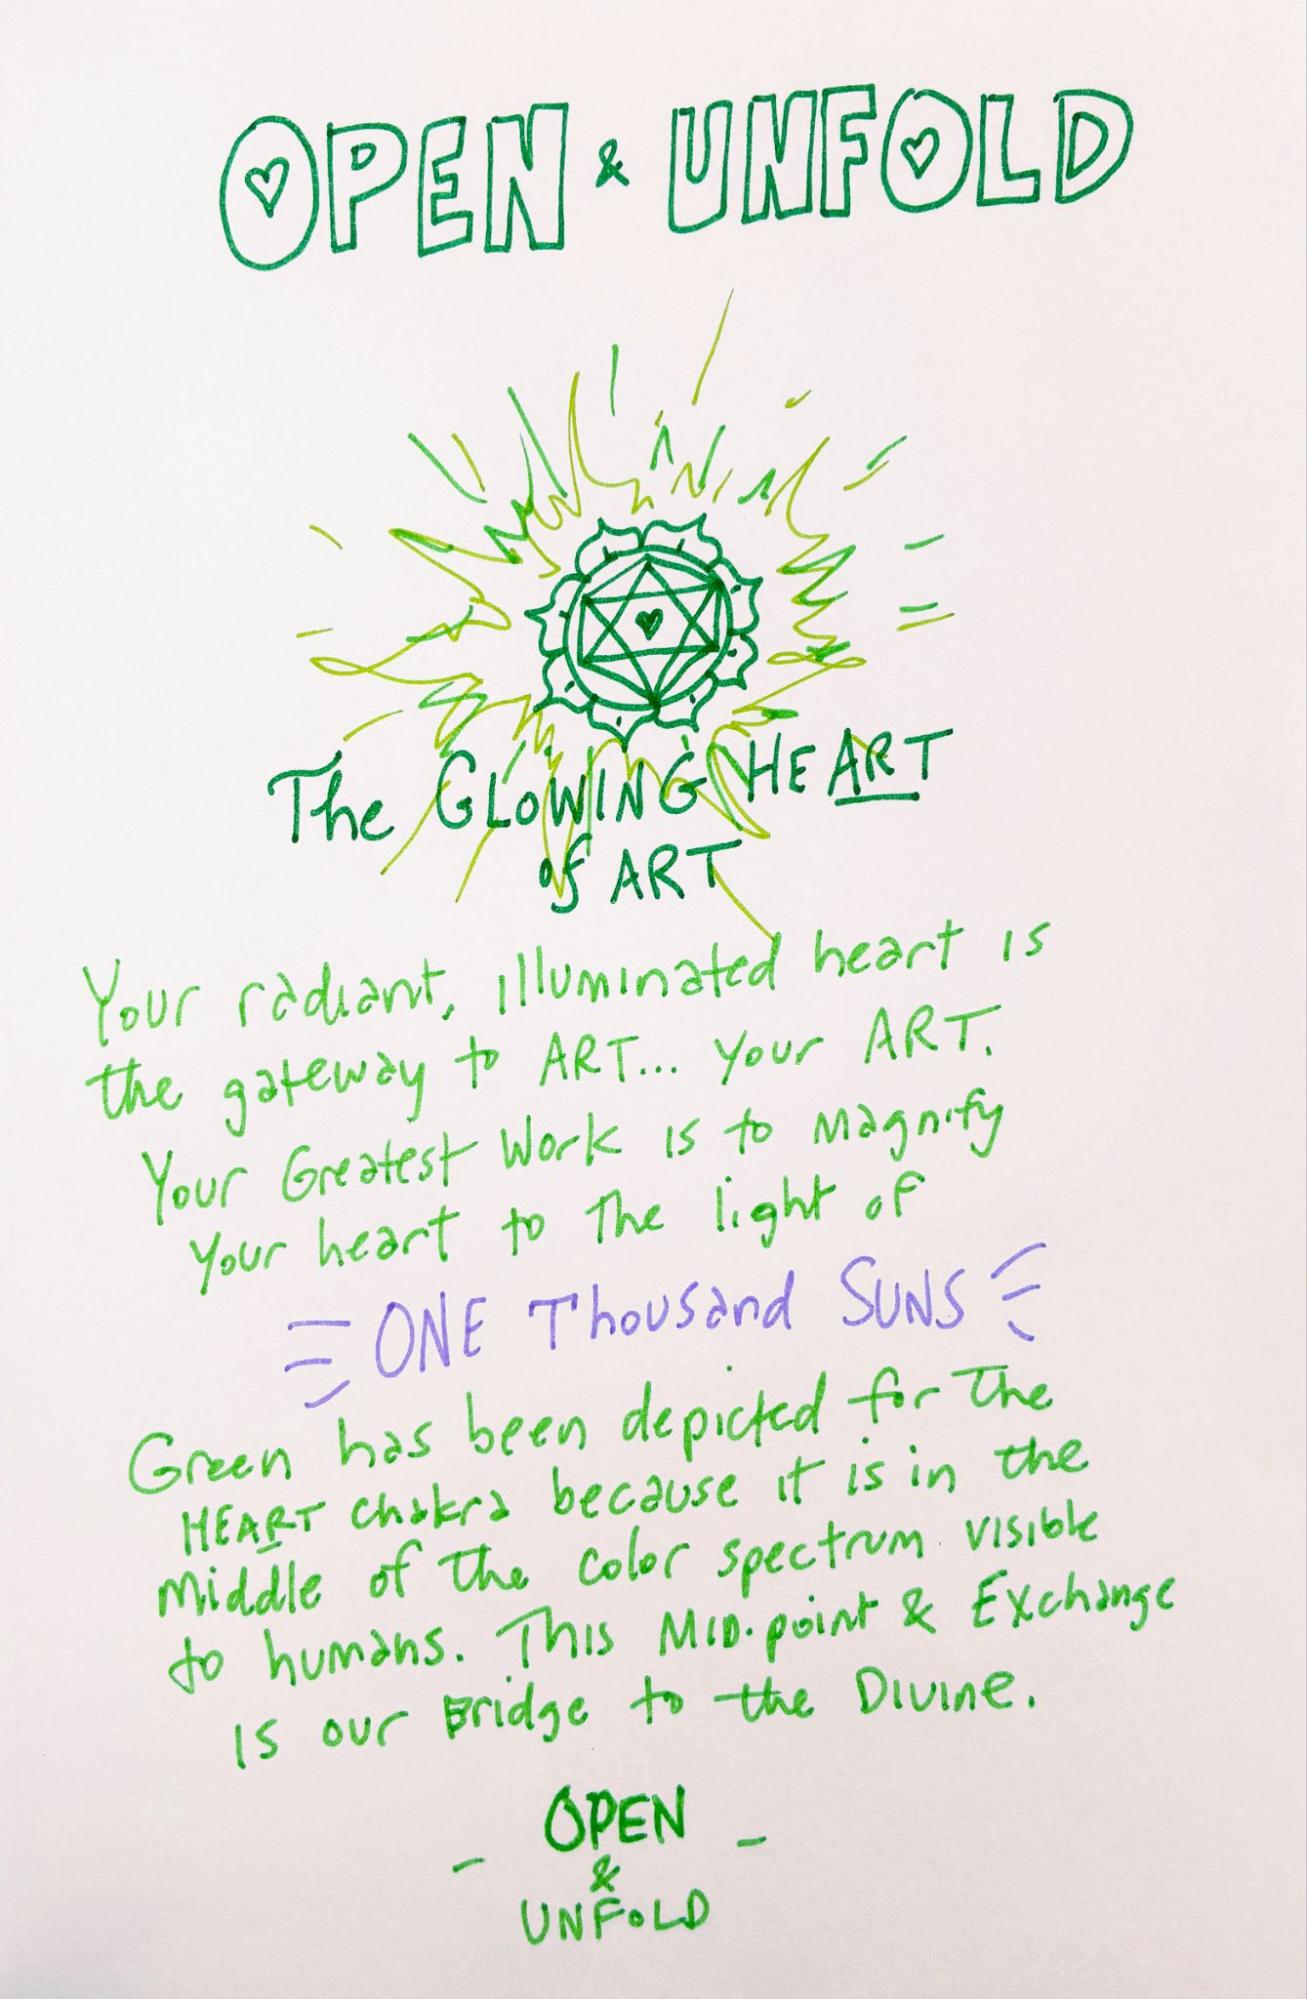 OPEN & UNFOLD
The GLOWING HEART
of ART
Your radiant, illuminated heart is
the gateway to ART... your ART.
Your Greatest Work is to magnify
your heart to the light of
ONE Thousand SUNS
Green has been depicted for the
HEART chakra because it is in the
middle of the color spectrum visible
to humans. This MID.point & Exchange
is our Bridge to the Divine.
OPEN
&
UNFOLD